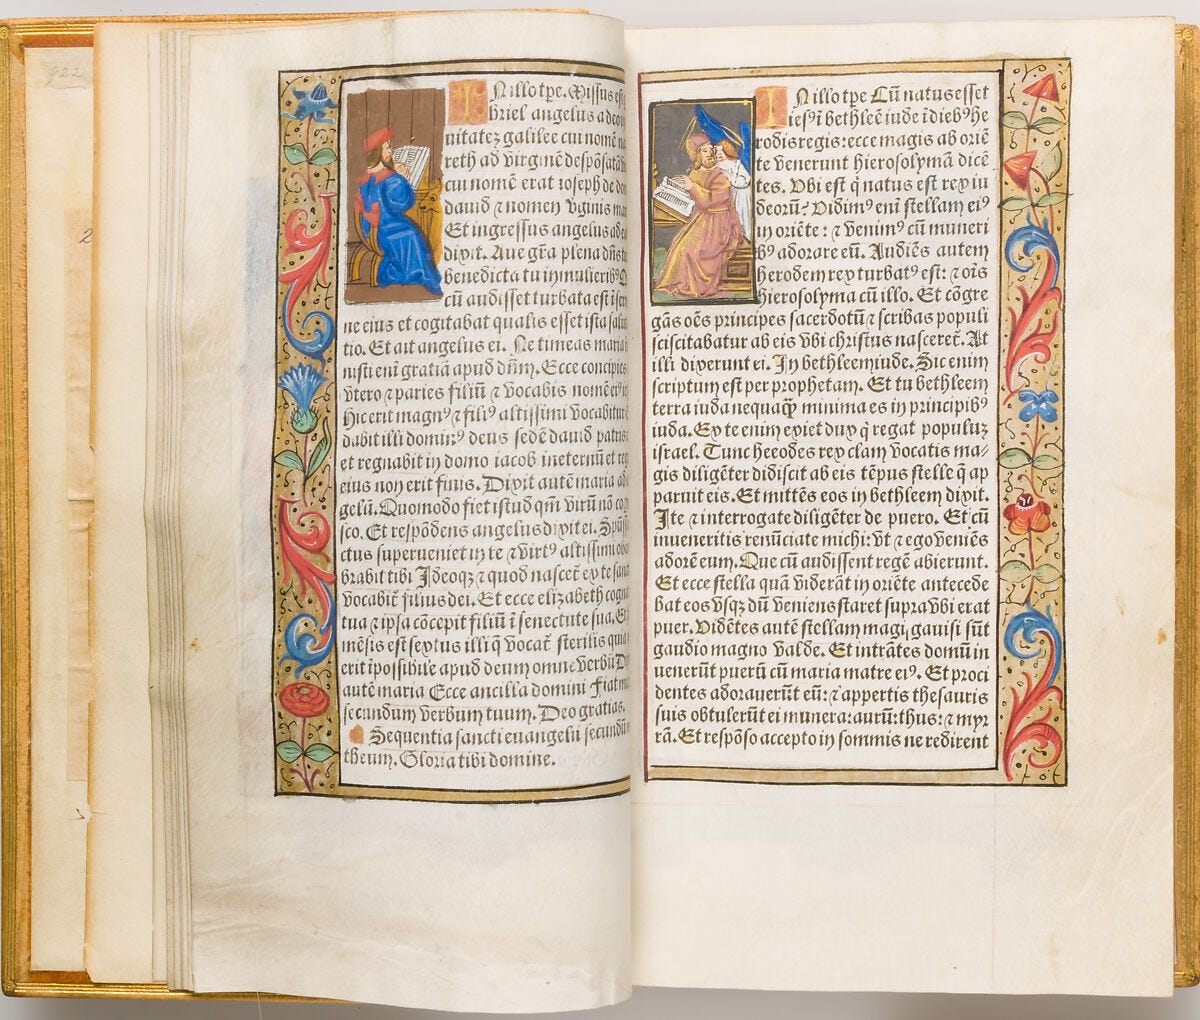 922
2
IN illo tpe. Missus est
briel angelus a deo
uitatez galilee cui nomē na
reth ad virginē despōsatā
cui nomē erat ioseph de do
dauid ⁊ nomen v̓ginis ma
Et ingressus angelus ad ea
dixit. Aue gr̄a plena dn̄s te
benedicta tu in mulieribꝰ Q
cū audisset turbata est ī ser
ne eius et cogitabat qualis esset ista salu
tio. Et ait angelus ei. Ne timeas maria
nisti enī gratiā apud dn̄m. Ecce concipies
vtero ⁊ paries filiū ⁊ vocabis nomē eiꝰ
Hic erit magnꝰ ⁊ filiꝰ altissimi vocabitur
dabit illi dominꝰ deus sedē dauid patris
et regnabit in domo iacob in eternū et reg
eius non erit finis. Dixit autē maria ad
gelū. Quomodo fiet istud qm̄ virū nō co
sco. Et respōdens angelus dixit ei. Spūs
ctus superueniet in te ⁊ virtꝰ altissimi obu
brabit tibi Ideoqꝫ ⁊ quod nascet̉ ex te san
vocabit̉ filius dei. Et ecce elizabeth cogn
tua ⁊ ipsa cōcepit filiū ī senectute sua. Et
mēsis est sextus illi q̄ vocat̉ sterilis quia
erit īpossibile apud deum omne verbū D
autē maria Ecce ancilla domini fiat m
secundum verbum tuum. Deo gratias.
Sequentia sancti euangelii secundū
theum. Gloria tibi domine.
IN illo tpe Cū natus esset
iesꝰ ī bethleē iude ī diebꝰ he
rodis regis: ecce magis ab oriē
te venerunt hierosolymā dicē
tes. Vbi est q̇ natus est rex iu
deorū? Vidimꝰ enī stellam eiꝰ
in oriēte: ⁊ venimꝰ cū muneri
bꝰ adorare eū. Audiēs autem
herodem rex turbatꝰ est: ⁊ oīs
hierosolyma cū illo. Et cōgre
gās oēs principes sacerdotū ⁊ scribas populi
sciscitabatur ab eis vbi christus nasceret̉. At
illi dixerunt ei. In bethleem iude. Sic enim
scriptum est per prophetam. Et tu bethleem
terra iuda nequaꝙ̄ minima es in principibꝰ
iuda. Ex te enim exiet dux q̇ regat populuz
israel. Tunc heeodes rex clam vocatis ma-
gis diligēter didiscit ab eis tēpus stelle q̄ ap
paruit eis. Et mittēs eos in bethleem dixit.
Ite ⁊ interrogate diligēter de puero. Et cū
inueneritis renūciate michi: vt ⁊ ego veniēs
adorē eum. Que cū audissent regē abierunt.
Et ecce stella quā viderāt in oriēte antecede
bat eos vsqꝫ dū veniens staret supra vbi erat
puer. Vidētes autē stellam magi, gauisi sūt
gaudio magno valde. Et intrātes domū in
uenerūt puerū cū maria matre eiꝰ. Et proci
dentes adorauerūt eū: ⁊ appertis thesauris
suis obtulerūt ei munera: aurū: thus: ⁊ myr
rā. Et respōso accepto in sommis ne redirent